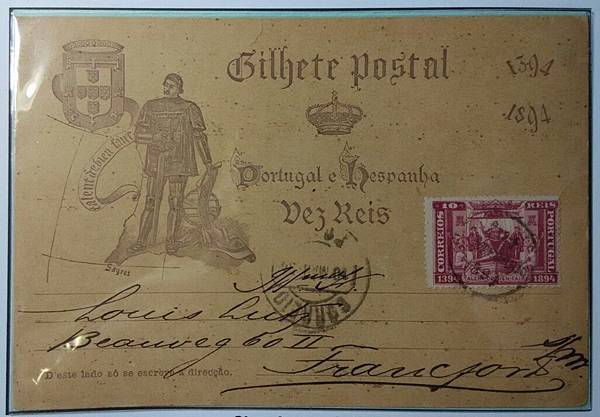 Bilhete Postal
1394
1894
Talent de bien faire
Portugal e Hespanha
Dez Reis
Sagres
10 REIS
CORREIOS
PORTUGAL
1394 1894
Louis
Beauweg 60 II
Francfort s/m
D'este lado só se escreve a direcção.